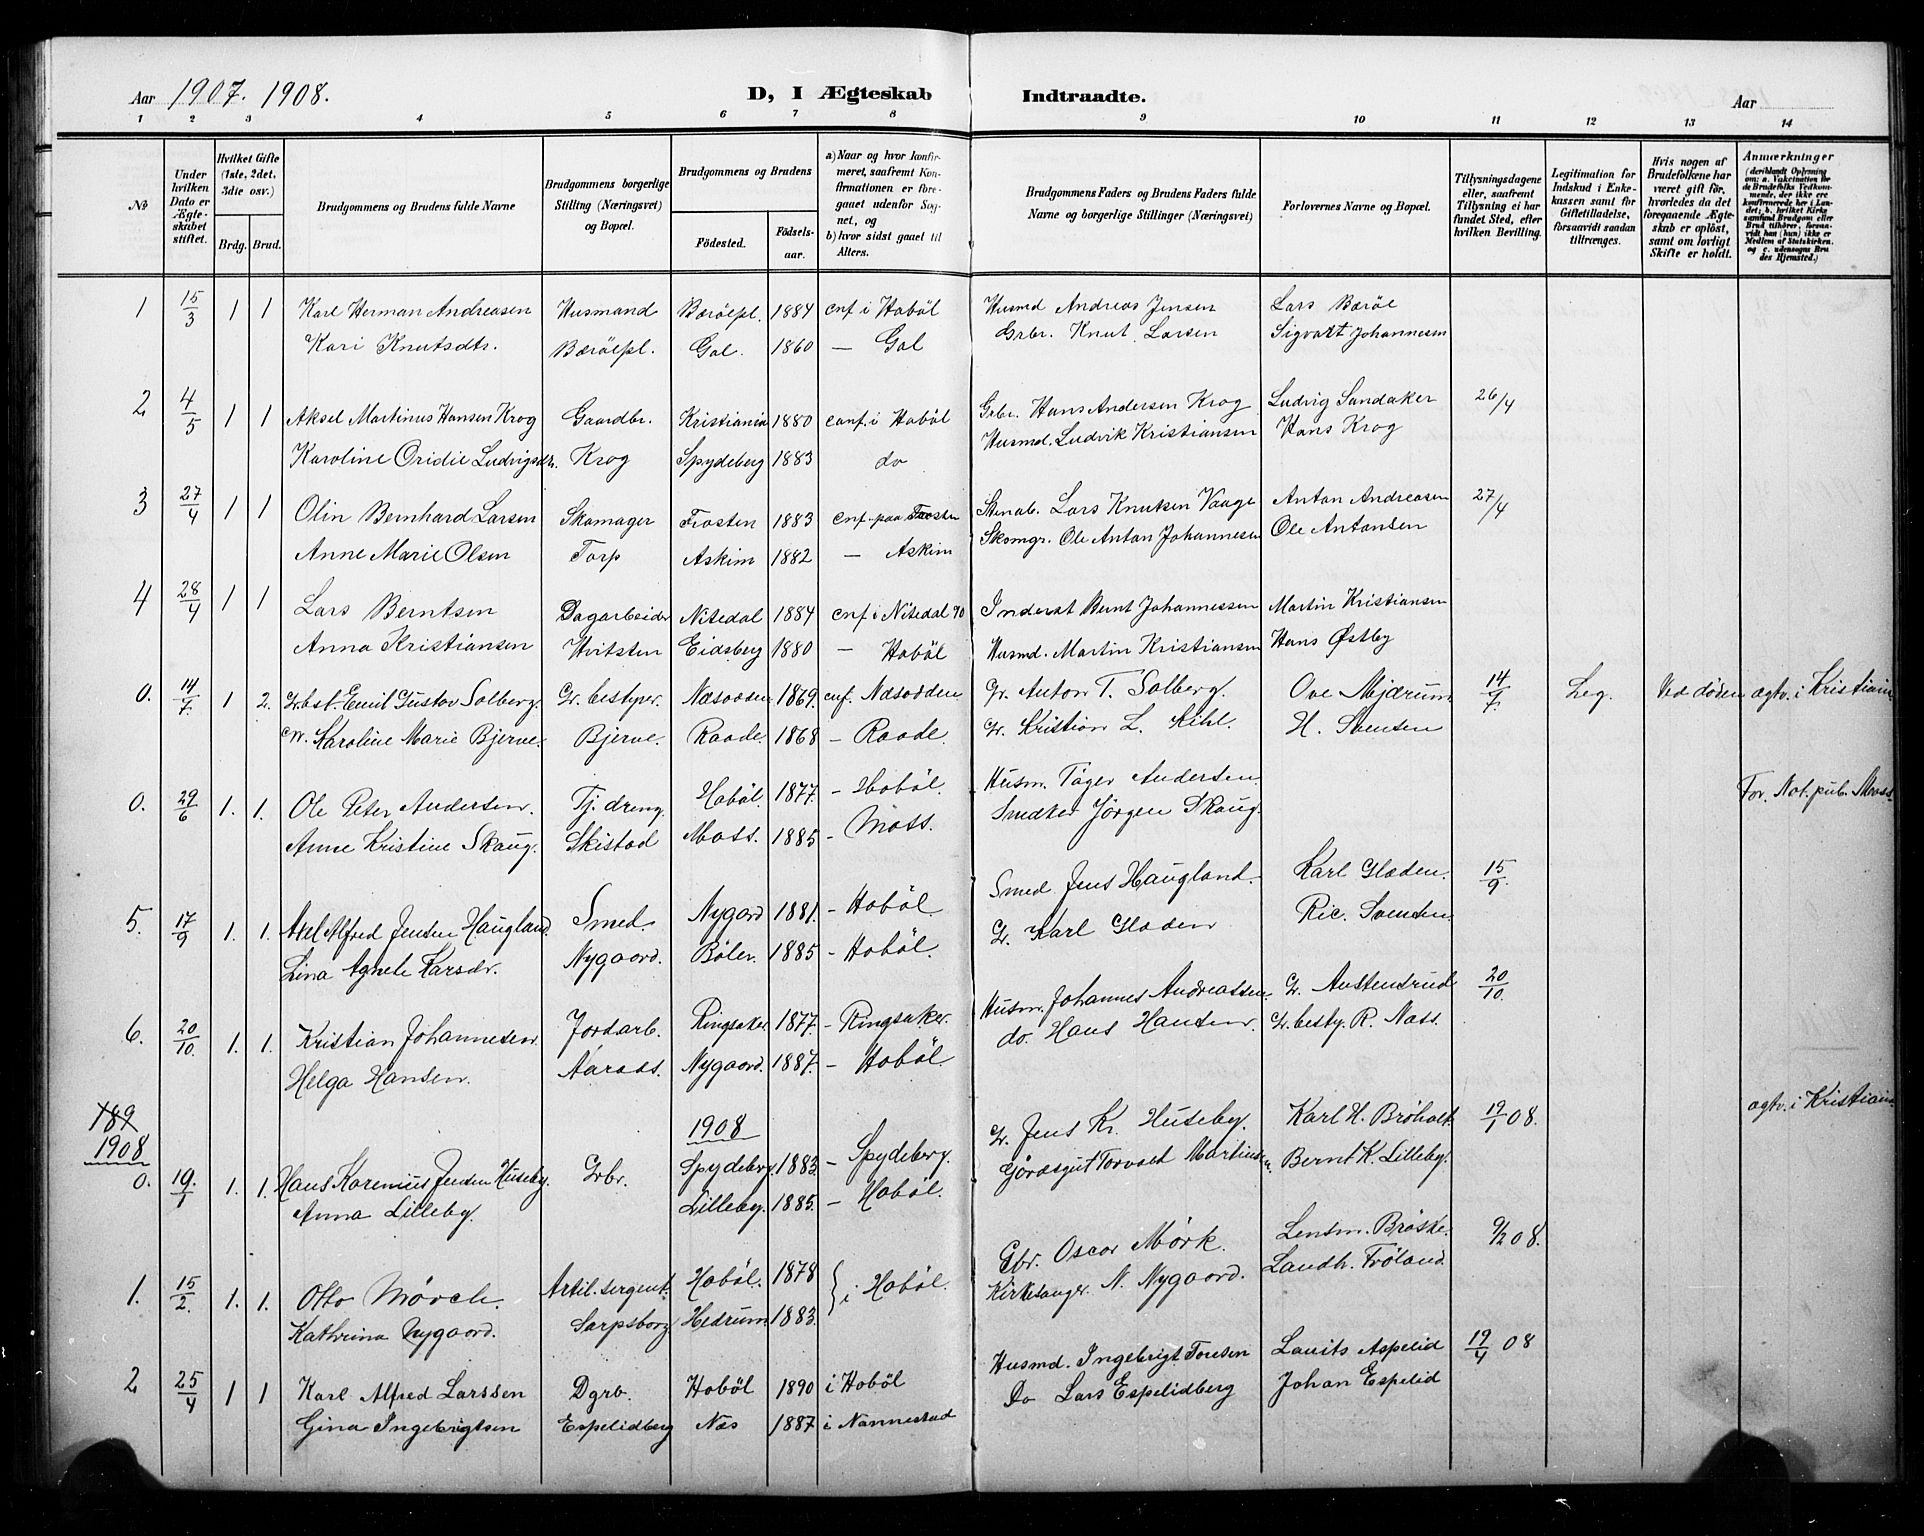 Aar 1907. 1908.
D, I Ægteskab Indtraadte.
Aar
1 2 3 4 5 6 7 8 9 10 11 12 13 14
No
Under hvilken Dato er Ægteskabet stiftet.
Hvilket Gifte (1ste, 2det, 3die osv.)
Brdg. Brud.
Brudgommens og Brudens fulde Navne
Brudgommens borgerlige Stilling (Næringsvei) og Bopæl.
Brudgommens og Brudens
Födested. Födselsaar.
a) Naar og hvor konfirmeret, saafremt Konfirmationen er foregaaet udenfor Sognet, og
b) hvor sidst gaaet til Alters.
Brudgommens Faders og Brudens Faders fulde Navne og borgerlige Stillinger (Næringsvei)
Forlovernes Navne og Bopæl.
Tillysningsdagene eller, saafremt Tillysning ei har fundet Sted, efter hvilken Bevilling.
Legitimation for Indskud i Enkekassen samt for Giftetilladelse, forsaavidt saadan tiltrænges.
Hvis nogen af Brudefolkene har været gift för, hvorledes da det foregaaende Ægteskab er oplöst, samt om lovligt Skifte er holdt.
Anmærkninger (deriblandt Oplysning om: a. Vakcination for de Brudefolks Vedkommende, der ikke ere konfirmerede her i Landet; b. hvilket Kirkesamfund Brudgom eller Brud tilhörer, forsaavidt han (hun) ikke er Medlem af Statskirken, og c. udensogns Brudes Hjemsted.)
1 15/3 1 1 Karl Herman Andreasen Husmand Bærölpl. 1884 cnf i Hoböl Husmd Andreas Jensen Lars Bæröe
Kari Knutsdtr. Bærölpl. Gol. 1860 — Gol Grbr. Knut Larsen Sigvart Johannesen
2 4/5 1 1 Aksel Martinus Hansen Krog Gaardbr. Kristiania 1880 conf. i Hoböl Grbr. Hans Andersen Krog Ludvig Sandaker 26/4
Karoline Oridie Ludvigsdtr. Krog Spydeberg 1883 do Husmd. Ludvik Kristiansen Hans Krog
3 27/4 1 1 Olin Bernhard Larsen Skomager Frosten 1883 cnf. paa Frosten Stenab. Lars Knutsen Vaage Anton Andreasen 27/4
Anne Marie Olsen Torp Askim 1882 — Askim Skomgr. Ole Anton Johannesen Ole Antonsen
4 28/4 1 1 Lars Berntsen Dagarbeider Nitedal 1884 cnf i Nitedal 90 Inderst Bernt Johannessen Martin Kristiansen
Anna Kristiansen Hvitsten Eidsberg 1880 — Hoböl Husmd. Martin Kristiansen Hans Østby
0. 14/7. 1 2. Grbst. Emil Gustav Solberg. Gr. bestyrer. Næsodden 1869. cnf. Næsodden Gr. Anton T. Solberg. Ove Mjærum 14/7. Leg. Ved døden ægtv. i Kristiania
Karoline Marie Bjerve. Bjerve. Raade. 1868 — Raade. Gr. Kristian L. Kihl. H. Svensen
0. 29/6 1. 1. Ole Peter Andersen. Tj. dreng. Hoböl. 1877. — Hoböl. Husm. Andersen For. Not. pub. Moss.
Anne Kristine Skaug. Skistad Moss. 1885 — Moss. Jörgen Skaug.
5. 17/9 1. 1. Axel Alfred Jensen Haugland. Smed. Nygaard 1881. — Hoböl. Smed Jens Haugland. Karl Gladen. 15/9.
Lina Agnete Karsdr. Nygaard. Böler. 1885 — Hoböl. Gr. Karl Gladen Ric. Svensen
6. 20/10. 1. 1. Kristian Johannesen. Jordarb. Ringsaker 1877. — Ringsaker. Husm. Johannes Andreassen. Gr. Austensrud 20/10.
Helga Hansen. Aaraas. Nygaard. 1887. — Hoböl. do. Hans Hansen. Gr. besty. R. Nass.
189
1908 1908
0. 19/1 1. 1. Hans Karenius Jensen Huseby. Grbr. Spydeberg. 1883 — Spydeberg. Gr. Jens Kr. Huseby. Karl H. Bröholt 19/1 08. ægtv. i Kristiania
Anna Lilleby. Lilleby. 1885. — Hoböl. Torvald Martinsen. Bernt K. Lilleby.
1. 15/2. 1. 1. Otto Mörch. Artil. sergent. Hoböl. 1878 } i Hoböl. Gbr. Oscar Mörk. Lensm. Bröske. 9/2 08.
Kathrina Nygaard. Sarpsborg Hedrum 1883. Kirkesanger N. Nygaard. Landh. Fröland.
2 25/4 1 1 Karl Alfred Larssen Dgrb. Hoböl 1890 i Hoböl Husmd. Ingebrigt Tonsen Lauits Aspelid 19/4 08
Gina Ingebrigtsen Espelidberg Næs 1887 i Nannestad Do Lars Espelidberg Johan Espelid